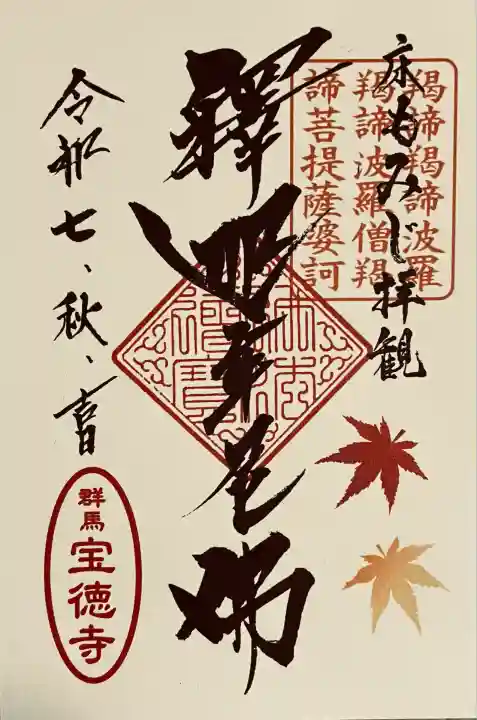 床もみじ拝観
羯諦羯諦波羅
羯諦波羅僧羯
諦菩提薩婆訶
釋迦牟尼佛
令和七、秋、吉日
群馬
宝徳寺